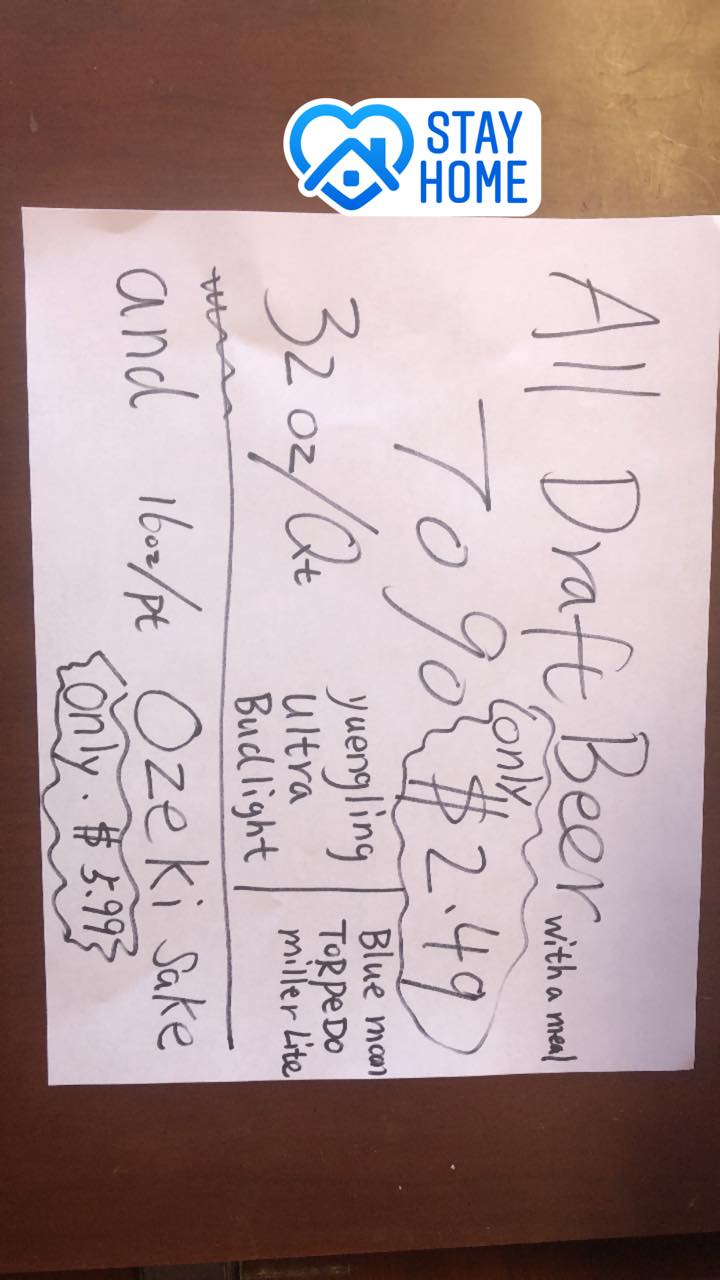 STAY
HOME
All Draft Beer with a meal
To go only $2.49
32 oz/Qt
yuengling
Ultra
Budlight
Blue moon
TORpeDO
miller Lite
and 16oz/pt Ozeki Sake
only. $5.99